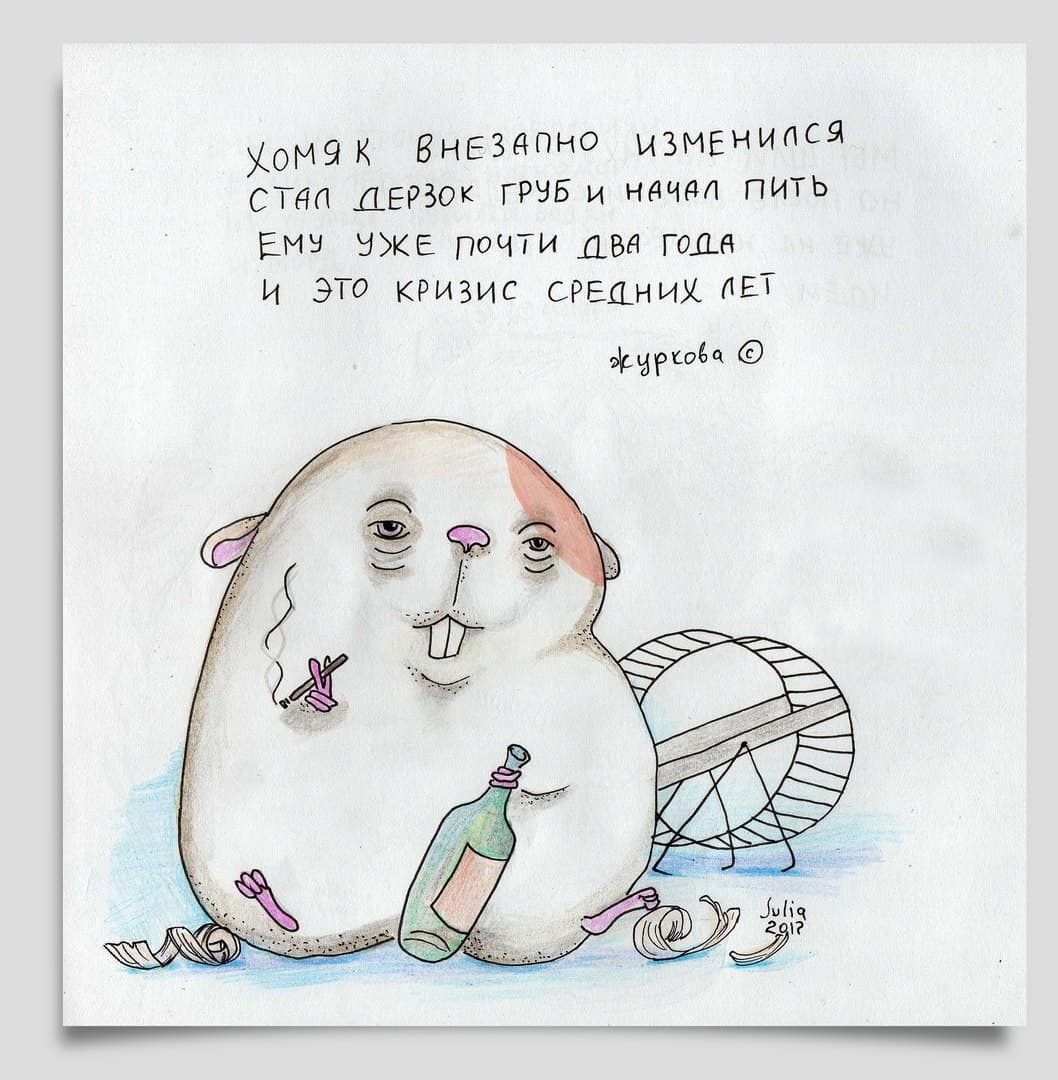 ХОМЯК ВНЕЗАПНО ИЗМЕНИЛСЯ
СТАЛ ДЕРЗОК ГРУБ И НАЧАЛ ПИТЬ
ЕМУ УЖЕ ПОЧТИ ДВА ГОДА
И ЭТО КРИЗИС СРЕДНИХ ЛЕТ
журкова ©
Julia
2017